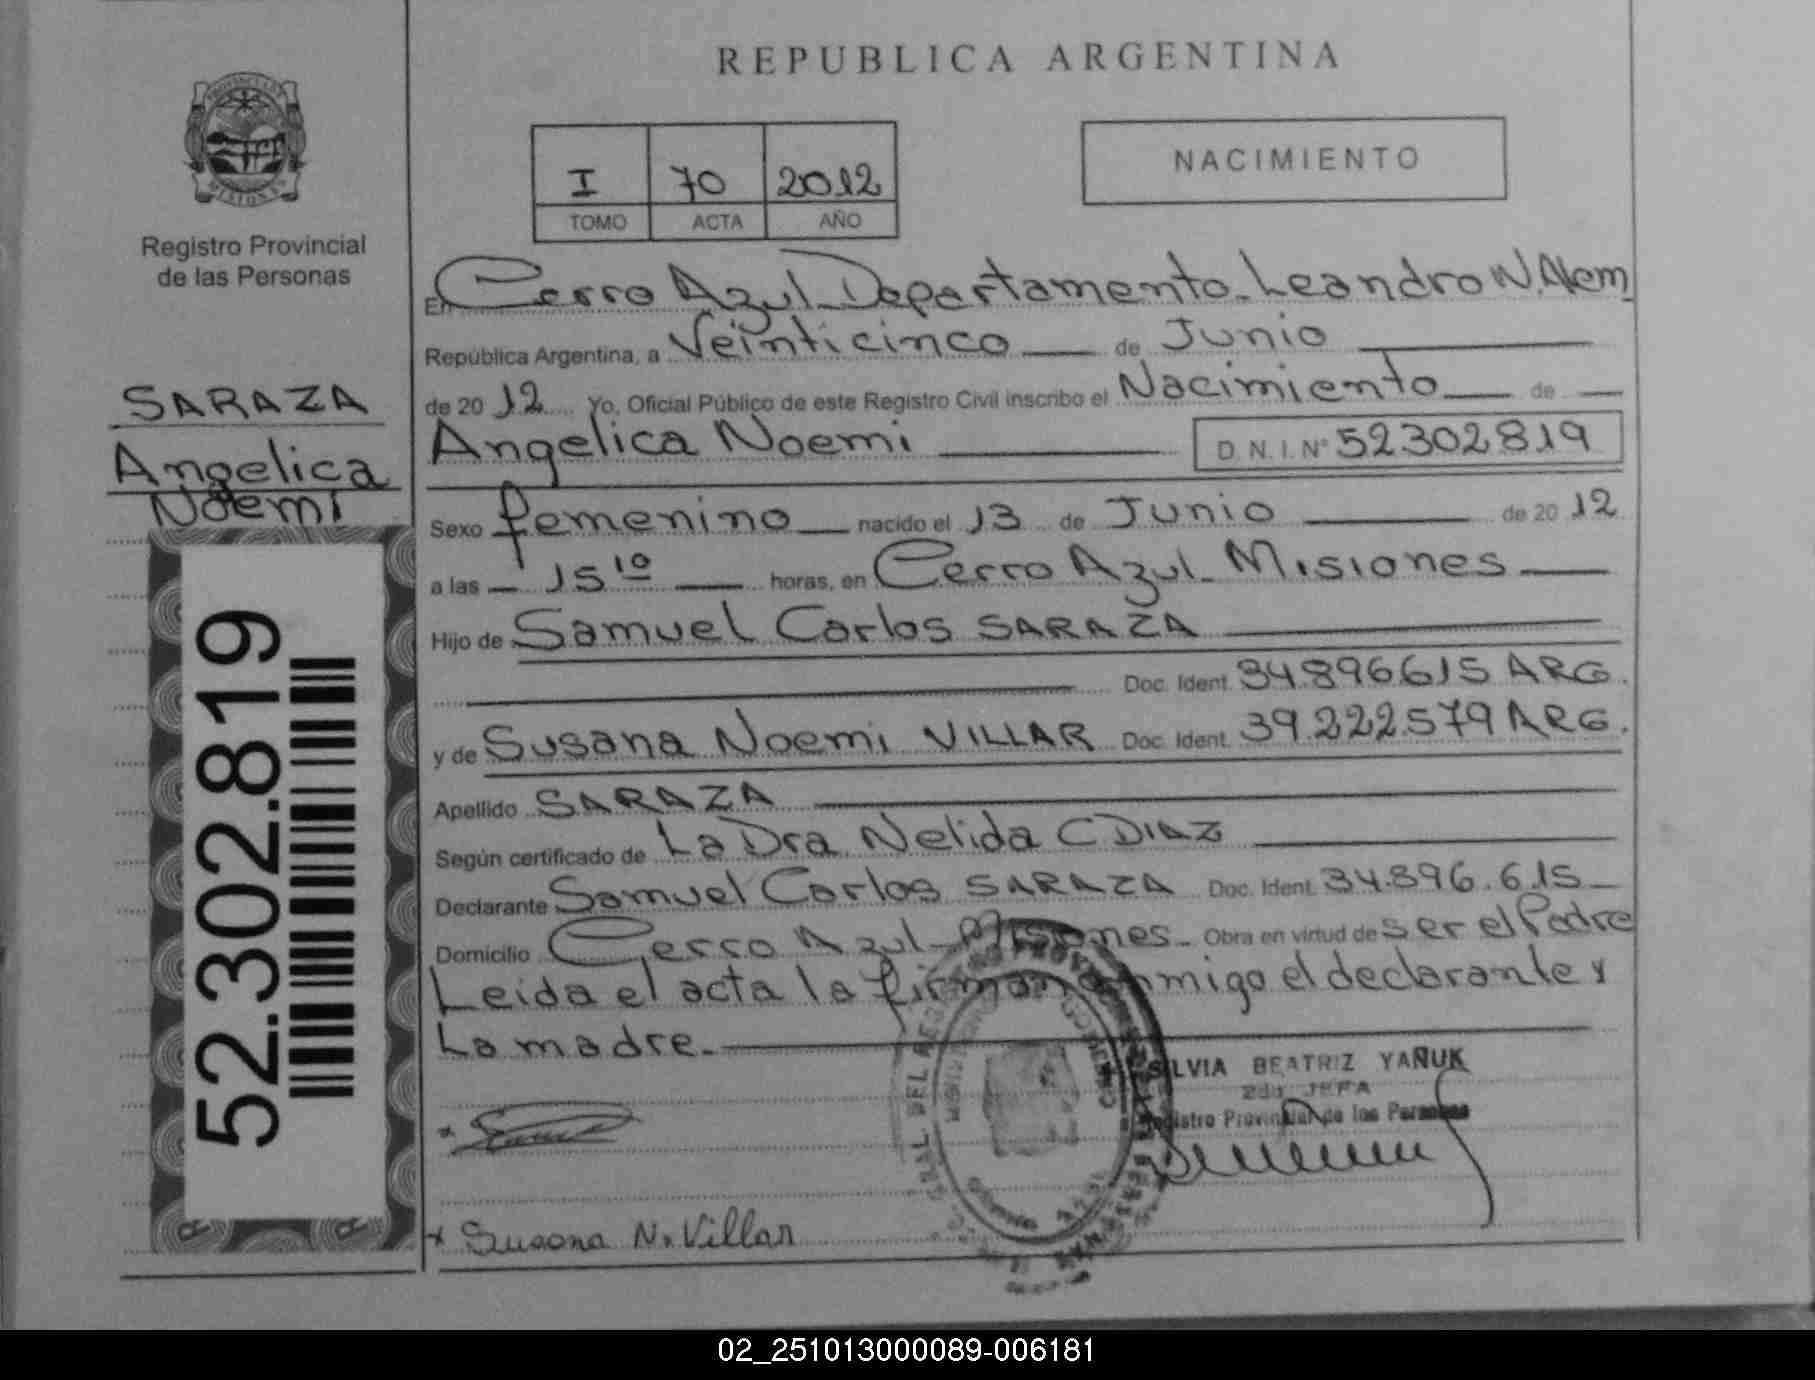 REPUBLICA ARGENTINA
PROVINCIA DE MISIONES
Registro Provincial
de las Personas
I 70 2012
TOMO ACTA AÑO
NACIMIENTO
SARAZA
Angelica
Noemi
52.302.819
En Cerro Azul Departamento Leandro N. Alem
República Argentina, a Veinticinco de Junio
de 2012 Yo, Oficial Público de este Registro Civil inscribo el Nacimiento de
Angelica Noemi D.N.I. Nº 52302819
Sexo femenino nacido el 13 de Junio de 2012
a las 15 10 horas, en Cerro Azul - Misiones
Hijo de Samuel Carlos SARAZA
Doc. Ident. 34.896615 ARG.
y de Susana Noemi VILLAR Doc. Ident. 39.222.579 ARG.
Apellido SARAZA
Según certificado de La Dra Nelida C DIAZ
Declarante Samuel Carlos SARAZA Doc. Ident. 34.896.615
Domicilio Cerro Azul - Misiones Obra en virtud de ser el Padre
Leida el acta la firman conmigo el declarante y
La madre.
SILVIA BEATRIZ YAÑUK
2da JEFA
Registro Provincial de las Personas
x Susana N. Villar
02_251013000089-006181